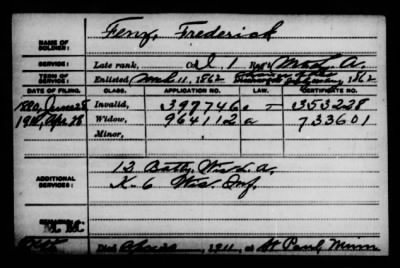 NAME OF SOLDIER: Fenz, Frederick
SERVICE: Late rank, Co. I, 1 Reg't Wis. A.
TERM OF SERVICE: Enlisted 11, 1862 Discharged 1862
DATE OF FILING. CLASS. APPLICATION NO. LAW. CERTIFICATE NO.
1880, June 28 Invalid, 397746 353228
1911, Apr. 28 Widow, 964112 a 733601
Minor,
ADDITIONAL SERVICES: 12 Batty. Wis. L. A.
K-6 Wis. Inf.
REMARKS:
Died Apr. , 1911, at St Paul, Minn